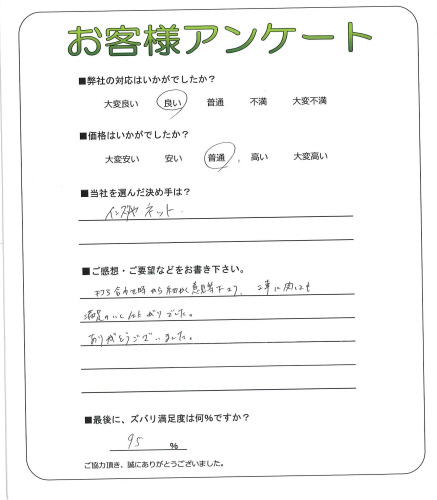 お客様アンケート
■弊社の対応はいかがでしたか？
大変良い 良い 普通 不満 大変不満
■価格はいかがでしたか？
大変安い 安い 普通 高い 大変高い
■当社を選んだ決め手は？
インズヤネット.
■ご感想・ご要望などをお書き下さい。
打ち合わせ時から細かく意見等下さり、工事に関しても
満足のいく仕上がりでした。
ありがとうございました。
■最後に、ズバリ満足度は何%ですか？
95 %
ご協力頂き、誠にありがとうございました。